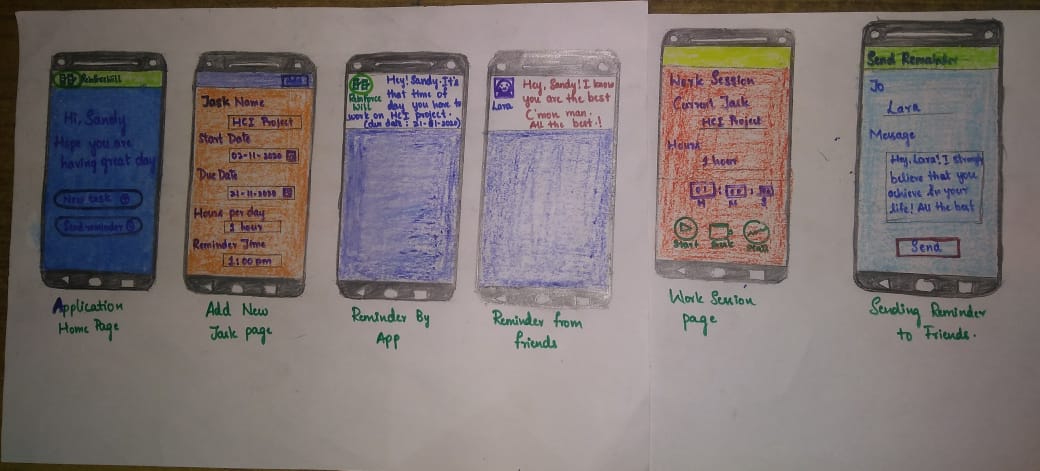 ReinforceWill
Hi, Sandy
Hope you are
having great day
New task
Send reminder
Application
Home Page
Task Name
HCI Project
Start Date
02-11-2020
Due Date
21-11-2020
Hours per day
1 hour
Reminder Time
1:00 pm
Add New
Task page
Reinforce
Will
Hey! Sandy. It's
that time of
day you have to
work on HCI project.
(due date : 21-11-2020)
Reminder By
App
Lara
Hey, Sandy! I know
you are the best
C'mon man.
All the best.!
Reminder from
friends
Work Session
Current Task
HCI Project
Hours
1 hour
01 : 00 :
H M S
Start Break Stats
Work Session
page
Send Remainder
To
Lara
Message
Hey, Lara! I strongly
believe that you
achieve in your
life! All the best
Send
Sending Reminder
to Friends.